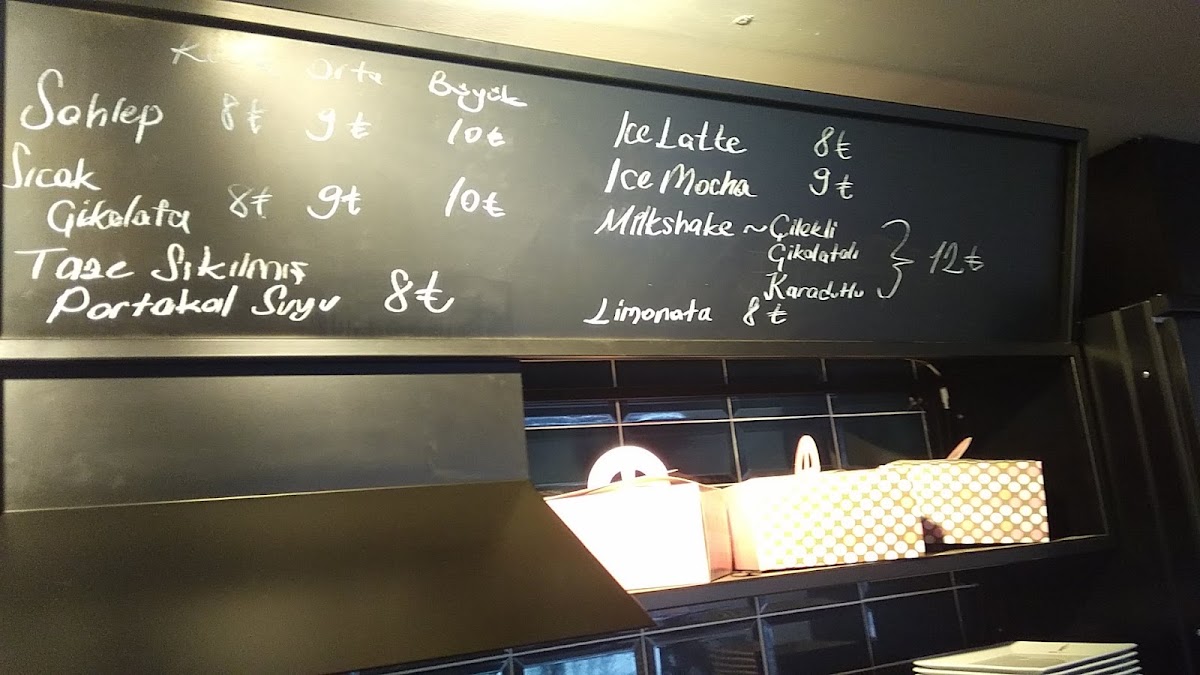 Orta Büyük
Sahlep 8₺ 9₺ 10₺
Sıcak
Çikolata 8₺ 9₺ 10₺
Taze Sıkılmış
Portakal Suyu 8₺
Ice Latte 8₺
Ice Mocha 9₺
Milkshake ~ Çilekli
Çikolatalı
Karadutlu
12₺
Limonata 8₺